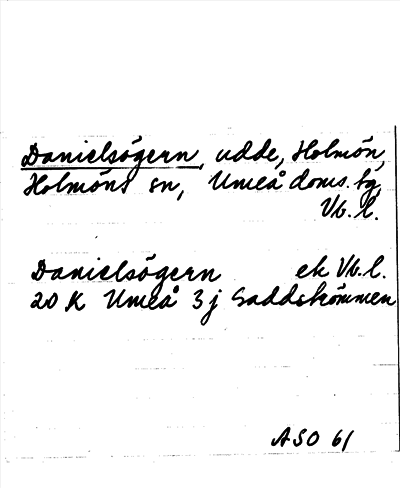 Danielsögern, udde, Holmön,
Holmöns sn, Umeå doms. bg,
Vb. l.
Danielsögern ek Vb. l.
20 K Umeå 3 j Gaddströmmen
ASO 61